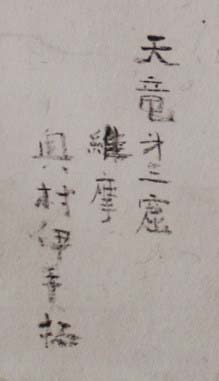 天竜才三窟
維摩
奥村伊拓